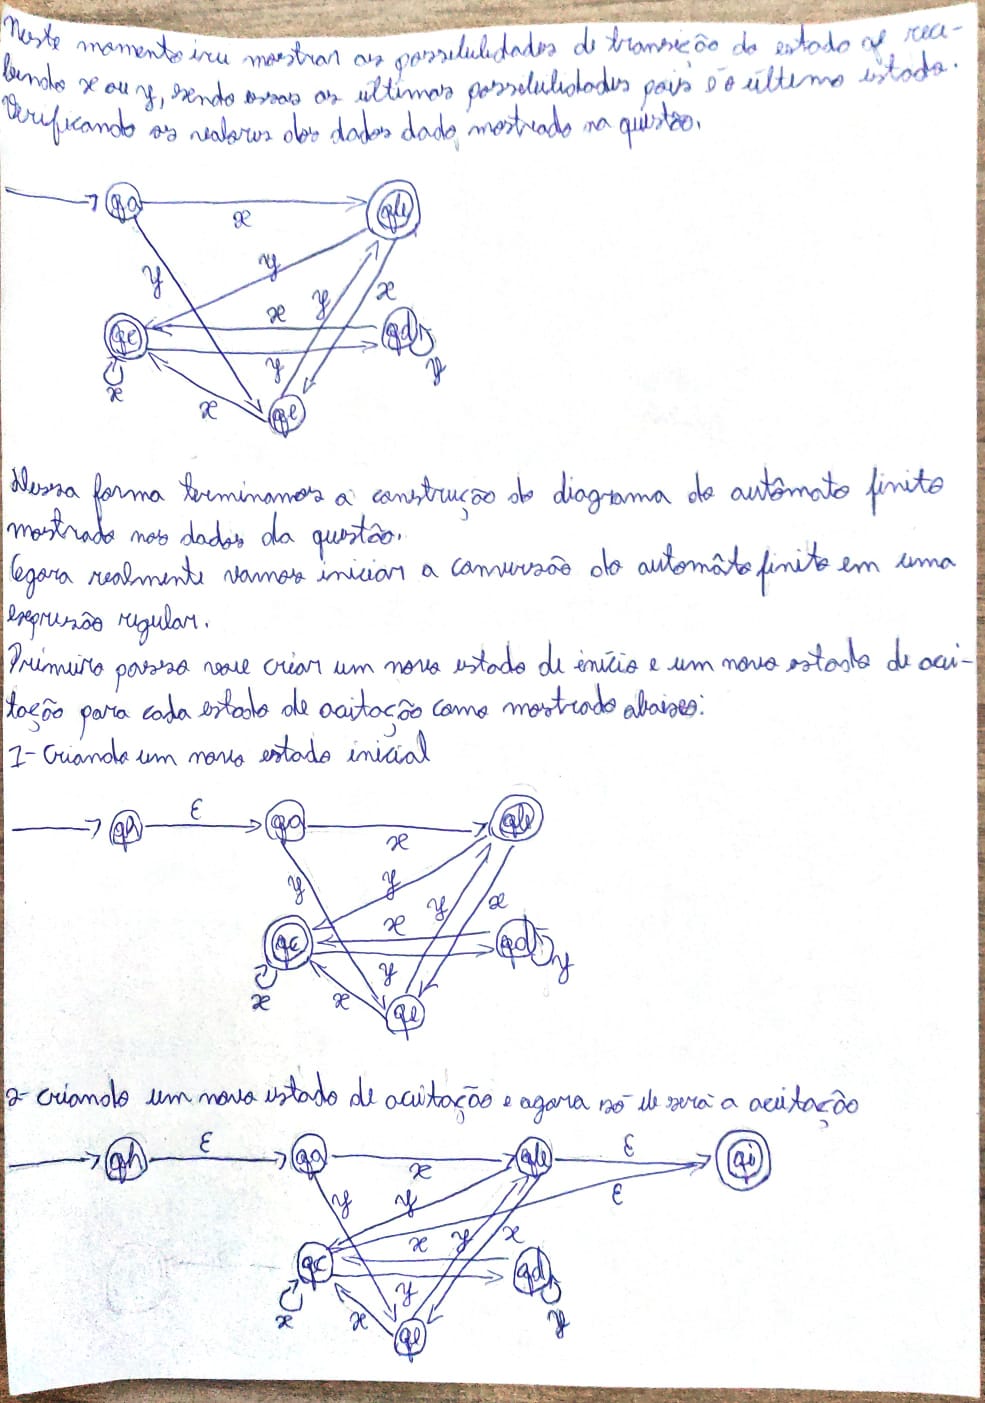 Neste momento irei mostrar as possibilidades de transição do estado qe rece-
bendo x ou y, sendo essas as últimas possibilidades pois é o último estado.
Verificando os valores dos dados dado mostrado na questão.
qa
x
qb
y
y
y
x
x
qc
qd
y
y
x
x
qe
Dessa forma terminamos a construção do diagrama do autômato finito
mostrado nos dados da questão.
Agora realmente vamos iniciar a conversão do automâto finito em uma
expressão regular.
Primeiro passo vou criar um novo estado de início e um novo estado de acei-
tação para cada estado de aceitação como mostrado abaixo:
1- Criando um novo estado inicial
qh
ε
qa
x
qb
y
y
y
x
x
qc
qd
y
y
x
x
qe
2- criando um novo estado de aceitação e agora só ele será a aceitação
qh
ε
qa
x
qb
ε
qi
y
y
ε
x
y
x
qc
qd
y
x
x
y
qe